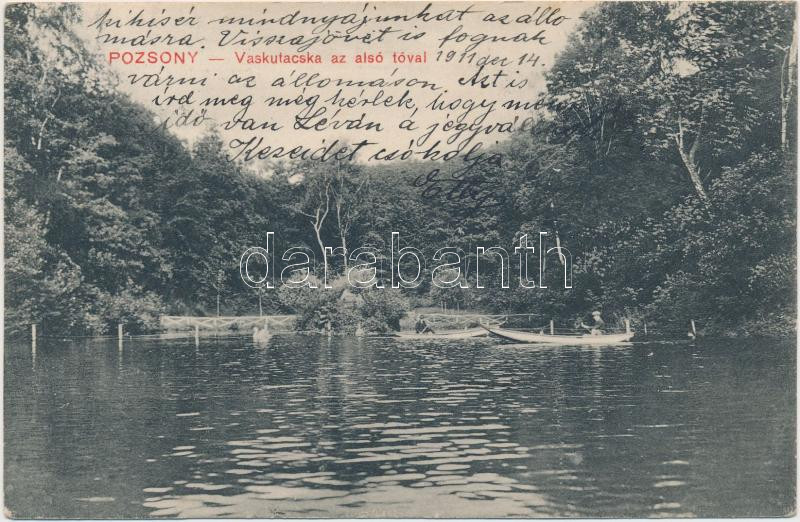 kikisér mindnyájunkat az állo
másra. Visszajövet is fognak
POZSONY — Vaskutacska az alsó tóval
1911 dec 14.
várni az állomáson. Azt is
ird meg még kérlek, hogy mennyi
idő van Leván a jegyváltásra
Kezeidet csókolja
darabanth